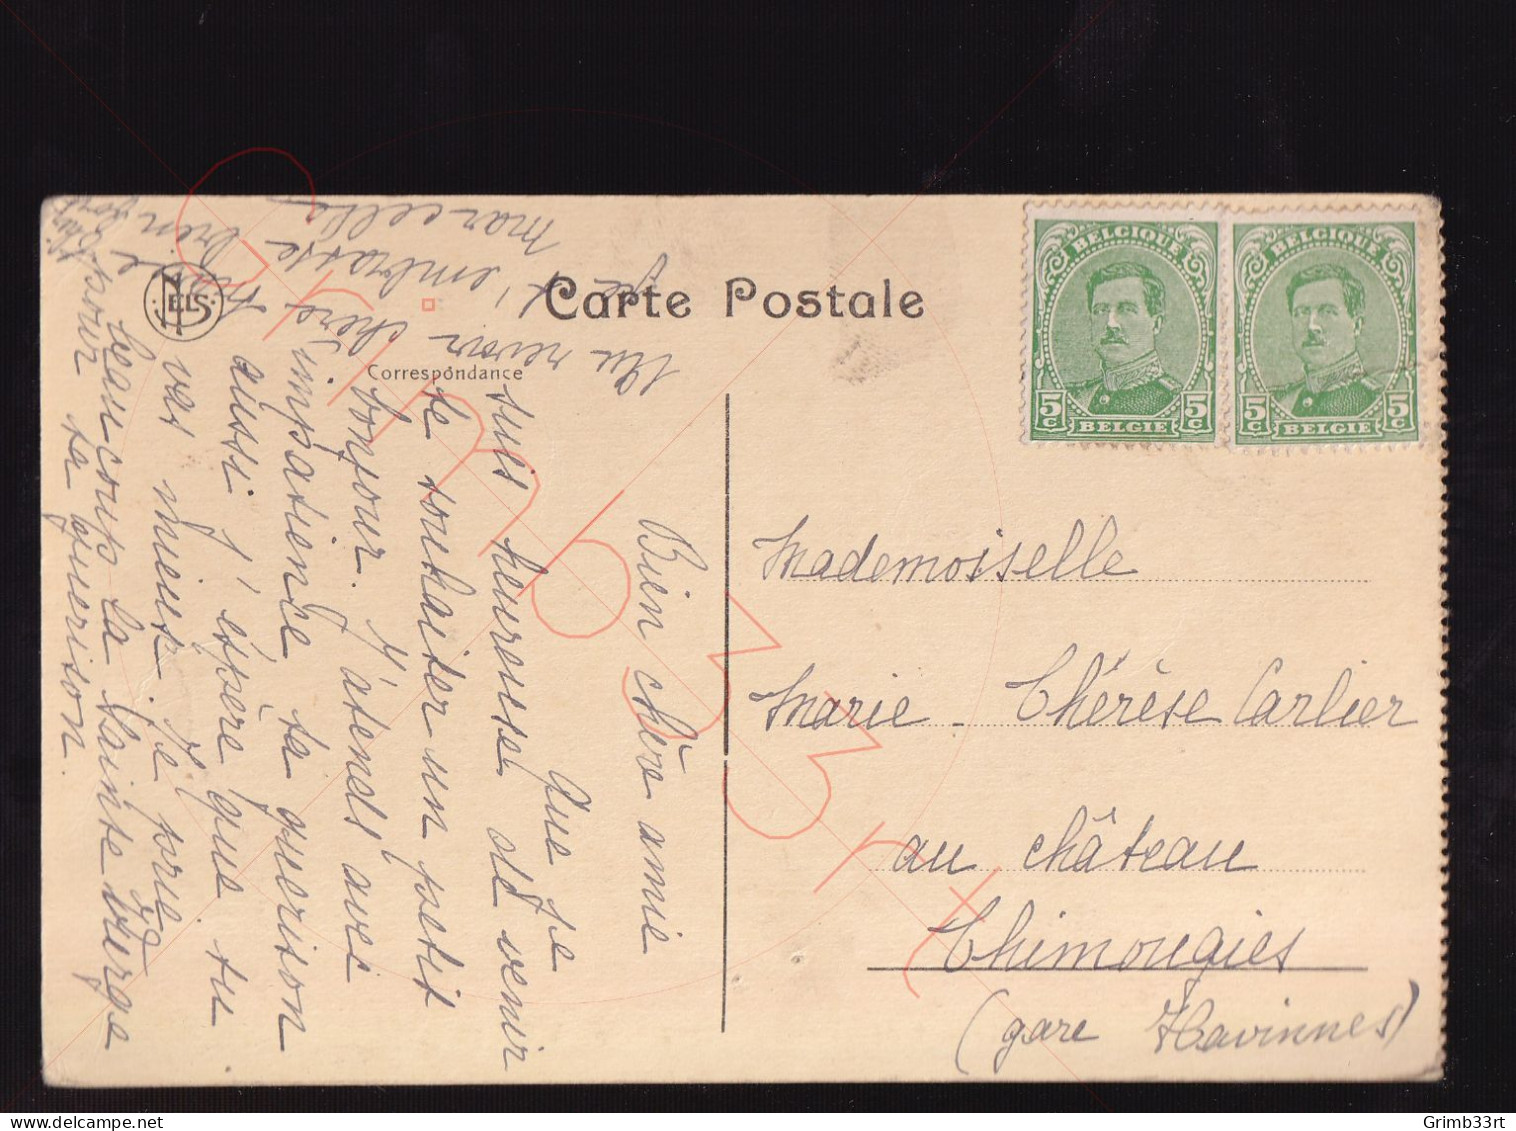 Carte Postale
Correspondance
NELS
BELGIQUE
5c 5c
BELGIE
BELGIQUE
5c 5c
BELGIE
Bien chère amie
Que je
suis heureuse de venir
te souhaiter un petit
bonjour. J'atends avec
impatience ta guerison
aussi j'éspère que tu
vas mieux. Je prie
beaucoup la Sainte Vierge
pour ta guerison.
Au revoir chère
je
t'embrasse bien
Marcelle
Mademoiselle
Marie-Thérèse Carlier
au château
Thimougies
(gare Havinnes)
Grimb33rt
delcampe.net Grimb33rt